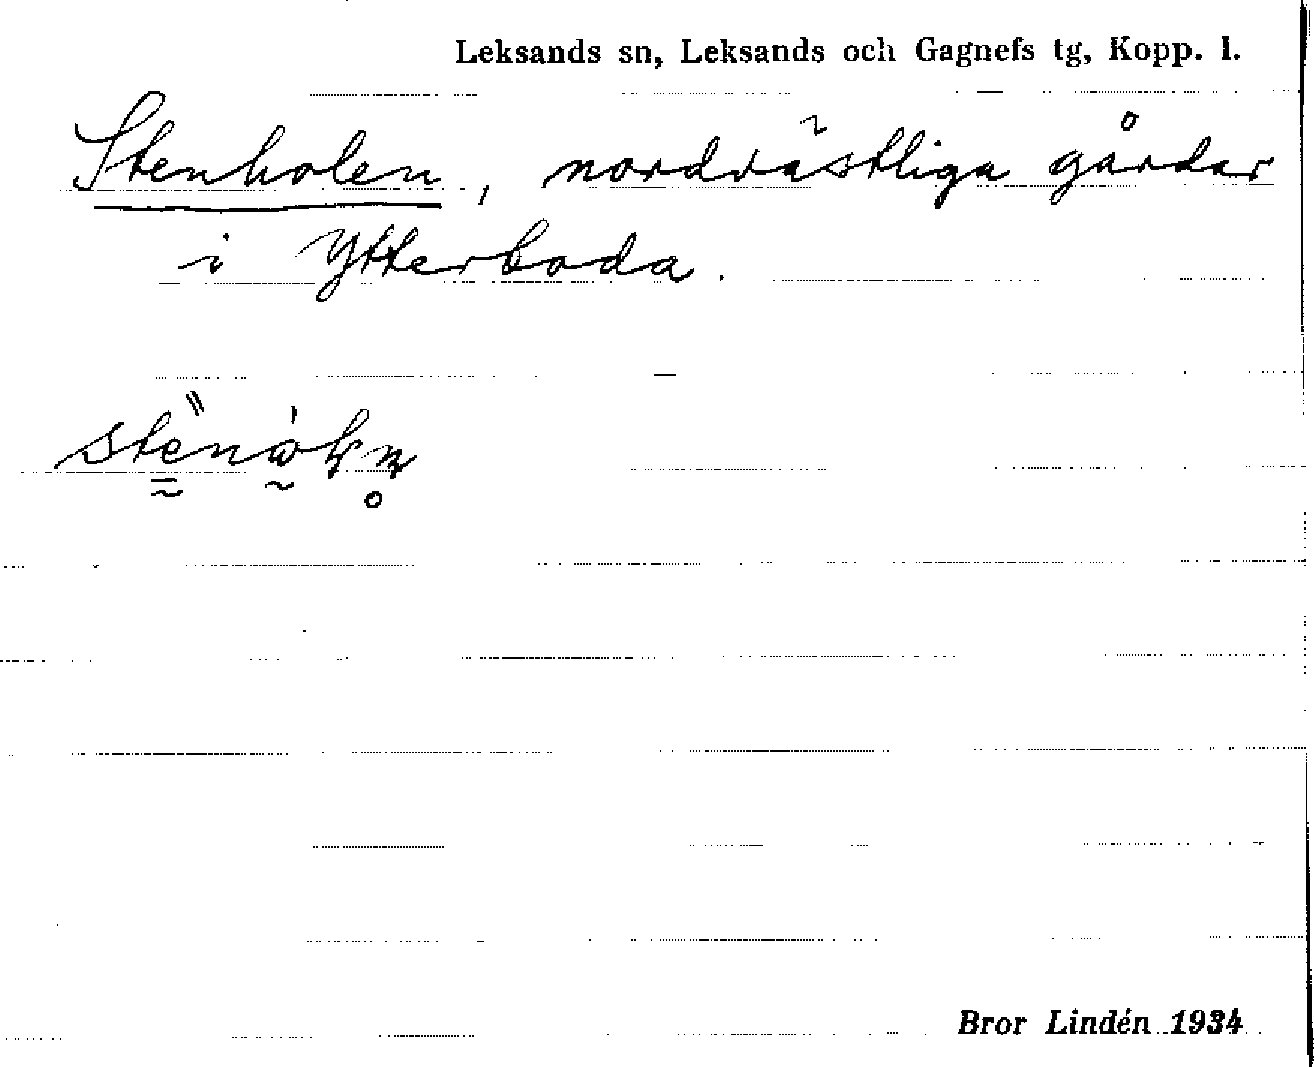 Leksands sn, Leksands och Gagnefs tg, Kopp. l.
Stenholen, nordvästliga gårdar
i Ytterboda.
Bror Lindén 1934